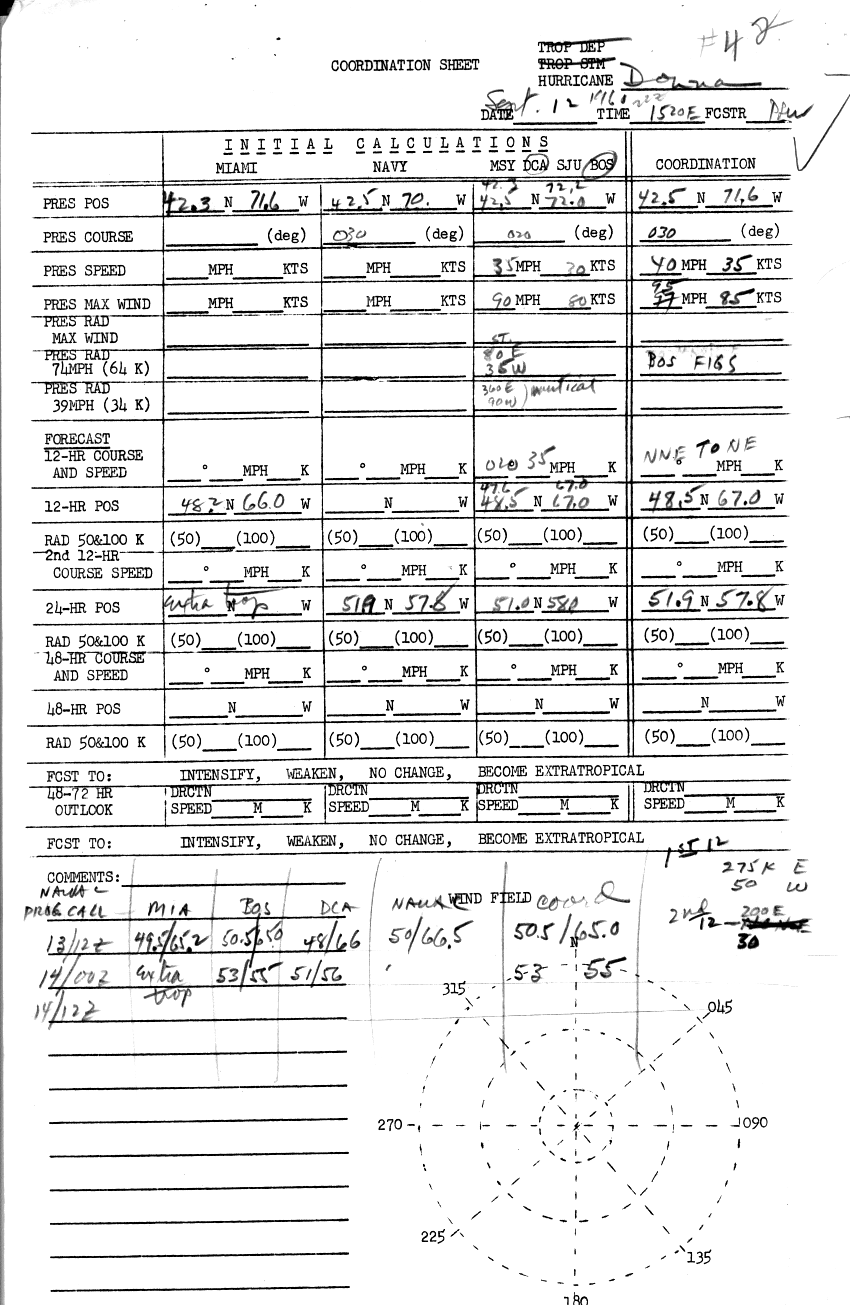 #4 2
TROP DEP
COORDINATION SHEET TROP STM
HURRICANE Donna
DATE Sept. 12 1960 22Z TIME 1520E FCSTR
INITIAL CALCULATIONS
MIAMI NAVY MSY DCA SJU BOS COORDINATION
42.3 72.2
PRES POS 42.3 N 71.6 W 42.5 N 70. W 42.5 N 72.0 W 42.5 N 71.6 W
PRES COURSE (deg) 030 (deg) 020 (deg) 030 (deg)
PRES SPEED MPH KTS MPH KTS 35 MPH 30 KTS 40 MPH 35 KTS
95
PRES MAX WIND MPH KTS MPH KTS 90 MPH 80 KTS 77 MPH 85 KTS
PRES RAD
MAX WIND ST.
PRES RAD 80 E
74MPH (64 K) 35 W BOS FIGS
PRES RAD 360 E
39MPH (34 K) 90 W ) nautical
FORECAST
12-HR COURSE NNE TO NE
AND SPEED ° MPH K ° MPH K 020 35 MPH K ° MPH K
47.6 67.0
12-HR POS 48.2 N 66.0 W N W 48.5 N 67.0 W 48.5 N 67.0 W
RAD 50&100 K (50) (100) (50) (100) (50) (100) (50) (100)
2nd 12-HR
COURSE SPEED ° MPH K ° MPH K ° MPH K ° MPH K
24-HR POS extra trop N W 51.9 N 57.8 W 51.0 N 580 W 51.9 N 57.8 W
RAD 50&100 K (50) (100) (50) (100) (50) (100) (50) (100)
48-HR COURSE
AND SPEED ° MPH K ° MPH K ° MPH K ° MPH K
48-HR POS N W N W N W N W
RAD 50&100 K (50) (100) (50) (100) (50) (100) (50) (100)
FCST TO: INTENSIFY, WEAKEN, NO CHANGE, BECOME EXTRATROPICAL
48-72 HR DRCTN DRCTN DRCTN DRCTN
OUTLOOK SPEED M K SPEED M K SPEED M K SPEED M K
FCST TO: INTENSIFY, WEAKEN, NO CHANGE, BECOME EXTRATROPICAL
1st 12
COMMENTS: 275K E
50 W
PROG CALL MIA BOS DCA WIND FIELD coord
2nd 12 - 200 E
30
13/12Z 49.5/65.2 50.5/650 48/66 50/66.5 50.5/65.0
N
14/00Z extra trop 53/55 51/56 53 55
14/12Z
315 045
270 090
225 135
180